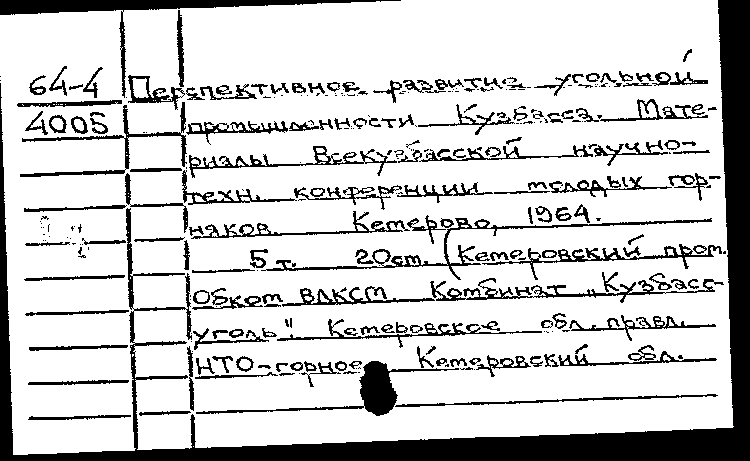 64-4 Перспективное развитие угольной
4005 промышленности Кузбасса. Мате-
риалы Всекузбасской научно-
техн. конференции молодых гор-
няков. Кемерово, 1964.
5 т. 20см. (Кемеровский пром.
Обком ВЛКСМ. Комбинат „Кузбасс-
уголь". Кемеровское обл. правл.
НТО-горное. Кемеровский обл.